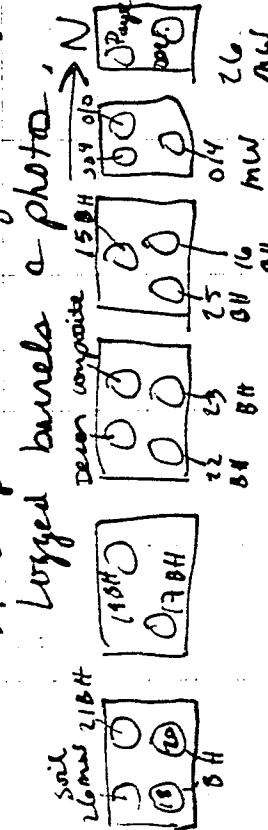 Logged barrels a photos,
N
Soil
26 MW
21 BH
18
20
BH
19 BH
17 BH
Decon composite
22
BH
23
BH
15 BH
25
BH
16
BH
010
014
MW
26
MW